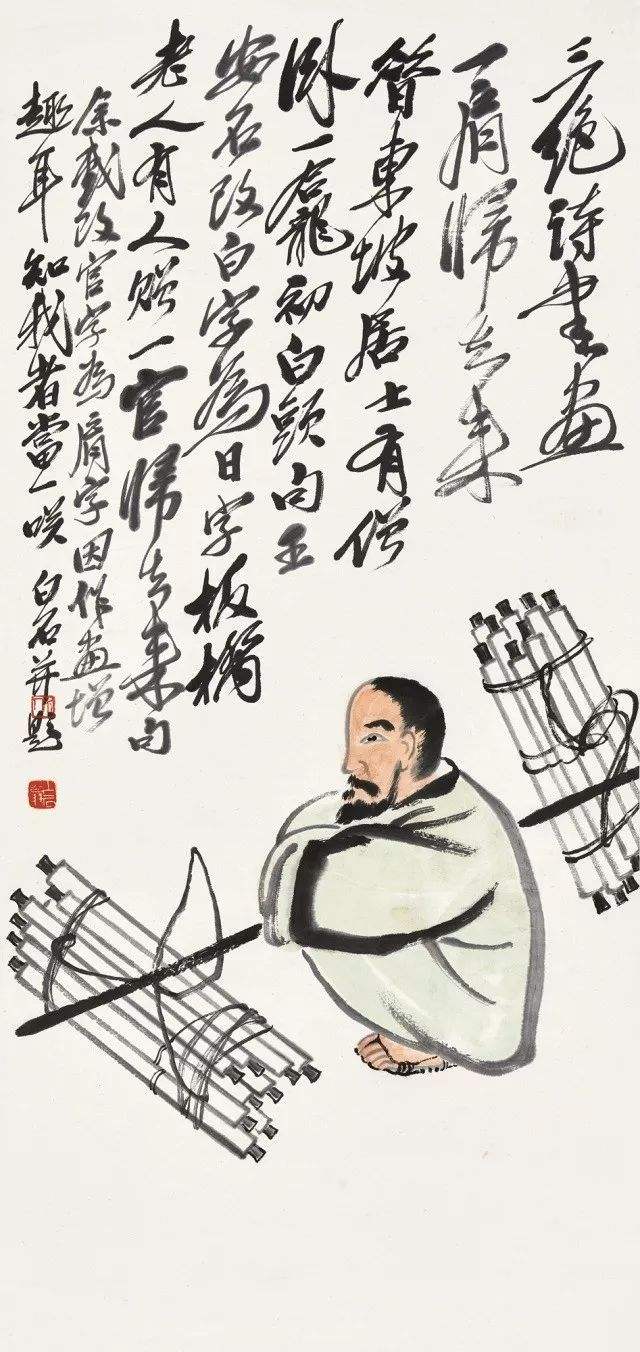 三絕詩書畫
一肩歸去來
昔東坡居士有僧
臥一龕初白頭句王
安石改白字為日字板橋
老人有人贈一官歸去來句
余戲改官字為肩字因作畫增
趣耳知我者當一咲白石并題